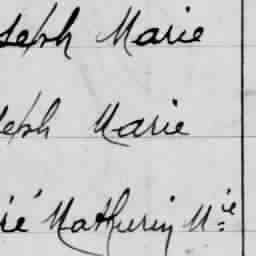 seph Marie
seph Marie
ré Mathurin M.ie